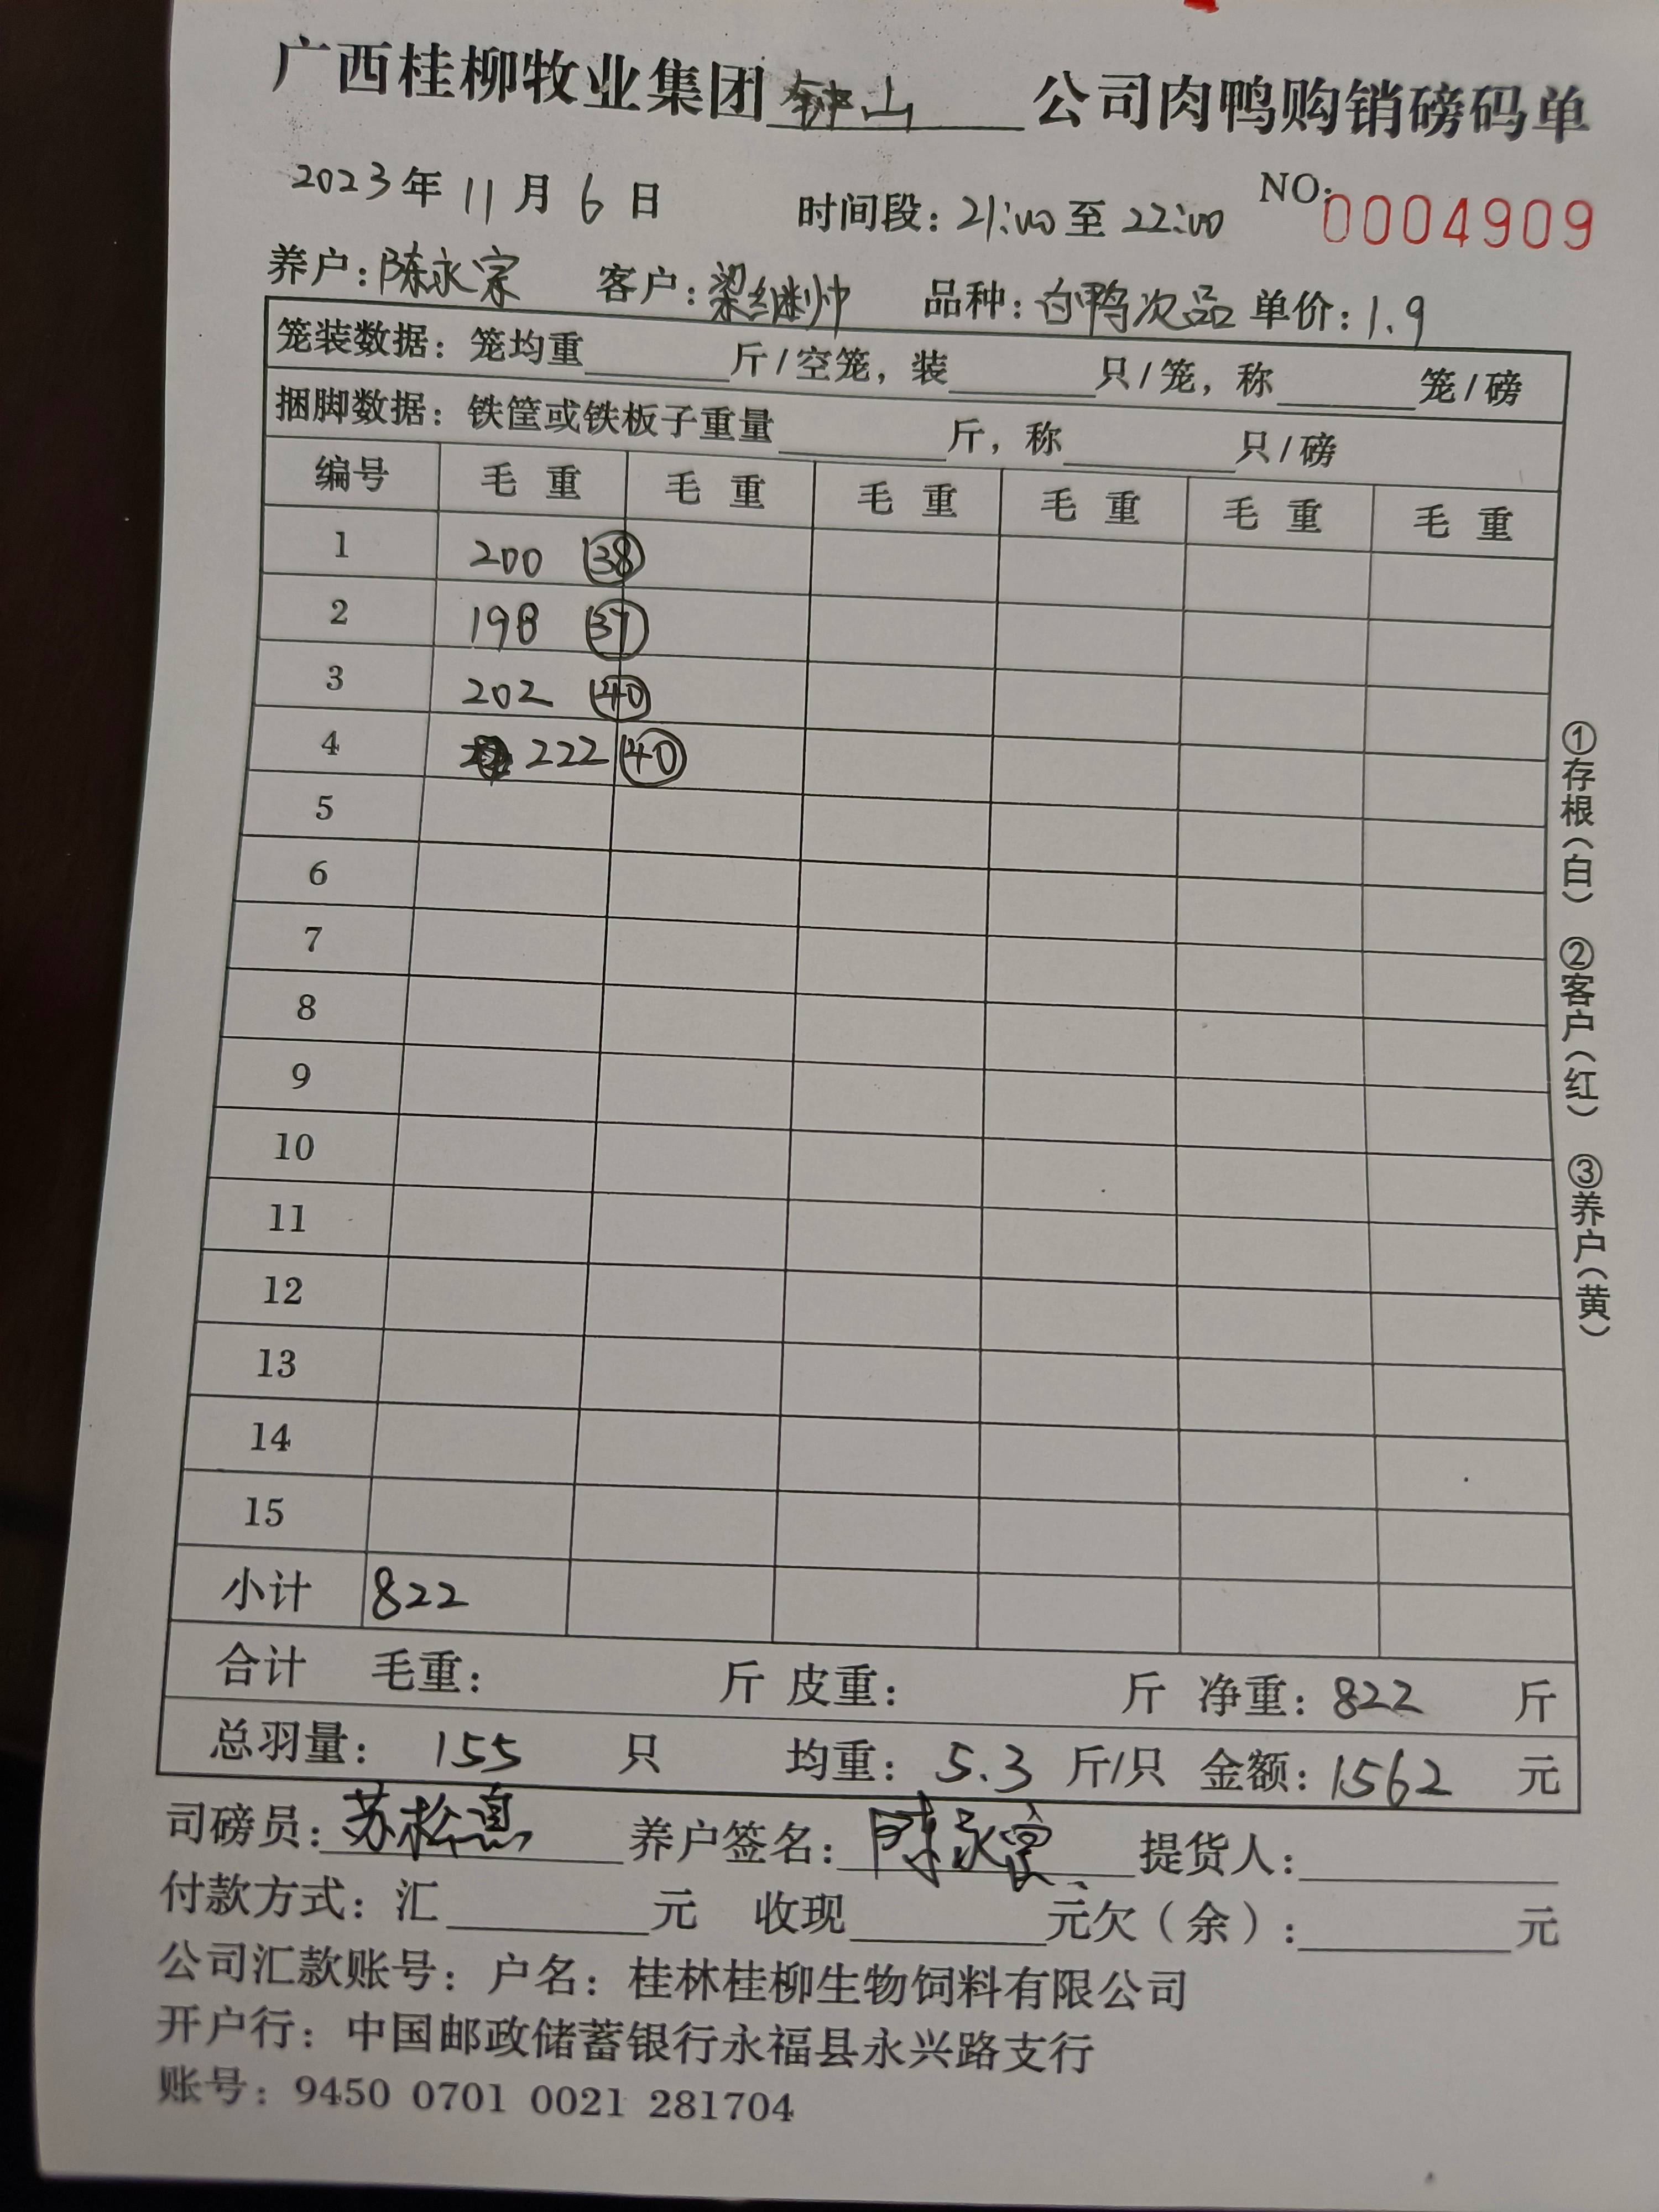 广西桂柳牧业集团钟山公司肉鸭购销磅码单
2023年11月6日 时间段：21:00至22:00 NO:0004909
养户：陈永宗 客户：梁继帅 品种：白鸭次品 单价：1.9
笼装数据：笼均重 斤/空笼，装 只/笼，称 笼/磅
捆脚数据：铁筐或铁板子重量 斤，称 只/磅
编号 毛重 毛重 毛重 毛重 毛重 毛重
1 200 38
2 198 37
3 202 40
4 222 40
5
6
7
8
9
10
11
12
13
14
15
小计 822
合计 毛重： 斤 皮重： 斤 净重：822 斤
总羽量：155 只 均重：5.3 斤/只 金额：1562 元
司磅员：苏松 养户签名：陈永宗 提货人：
付款方式：汇 元 收现 元欠（余）： 元
公司汇款账号：户名：桂林桂柳生物饲料有限公司
开户行：中国邮政储蓄银行永福县永兴路支行
账号：9450 0701 0021 281704
①存根（白） ②客户（红） ③养户（黄）